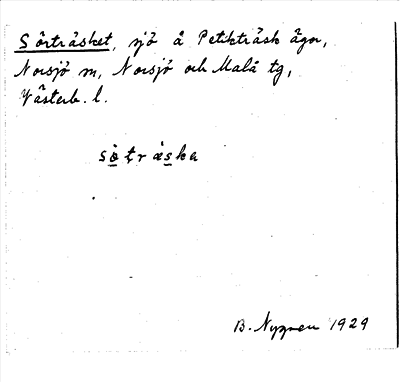 Sörträsket, sjö å Petikträsk ägor,
Norsjö sn, Norsjö och Malå tg,
Västerb. l.
sò̱ṭrás̱ka
B. Nygren 1929